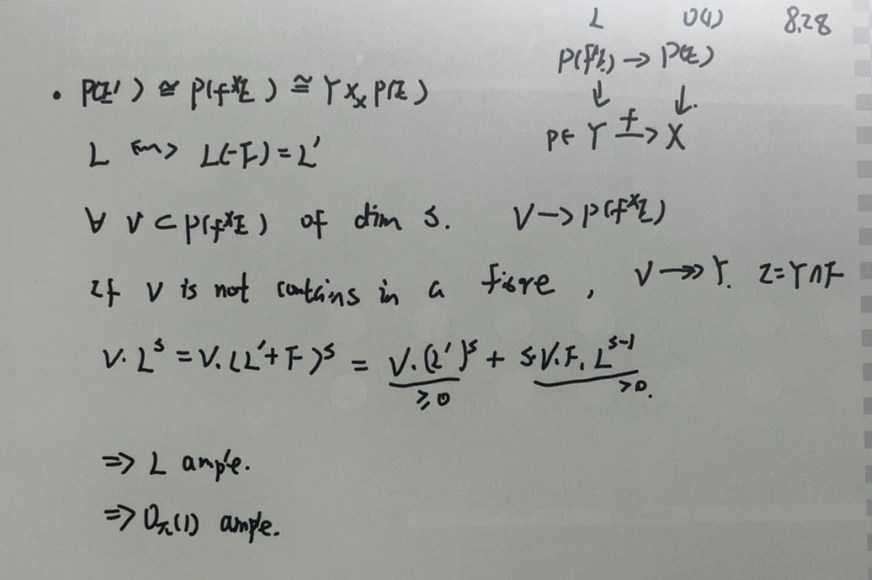 L O(1) 8.28
P(f*E) → P(E)
↓ ↓
P∈ Y →f X
• P(E') ≅ P(f*E) ≅ Y ×ₓ P(E)
L ⟿ L(-F) = L'
∀ V ⊂ P(f*E) of dim s. V → P(f*E)
If V is not contains in a fibre, V ↠ Y. Z = Y∩F
V·Lˢ = V·(L'+F)ˢ = V·(L')ˢ + s·V·F·Lˢ⁻¹
≥0 >0.
⇒ L ample.
⇒ O(1) ample.